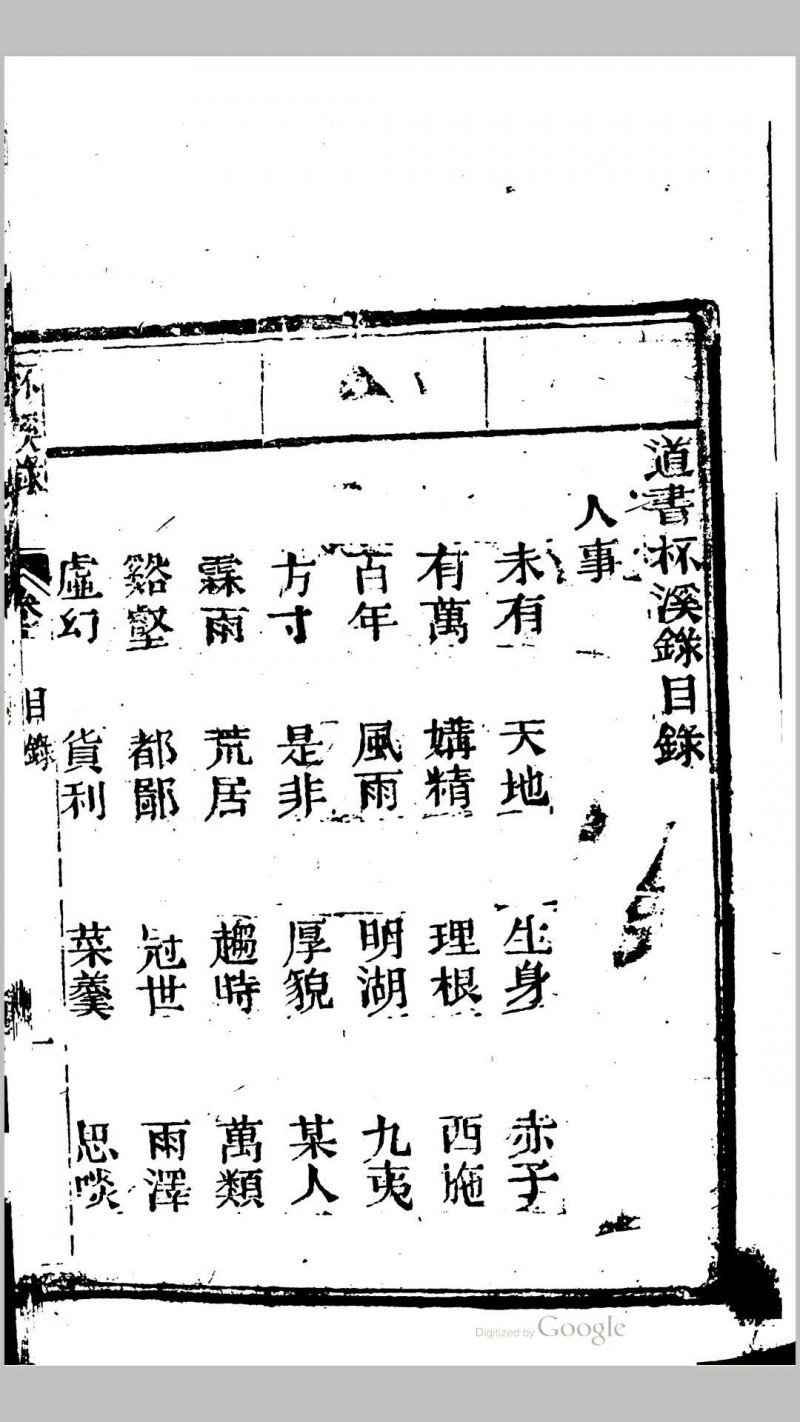 道書杯溪錄目錄
人事
未有 天地 生身 赤子
有萬 媾精 理根 西施
百年 風雨 明湖 九夷
方寸 是非 厚貌 某人
霖雨 荒居 趨時 萬類
谿壑 都鄙 冠世 雨澤
虛幻 貨利 菜羹 思啖
杯溪錄 目錄 一
Digitized by Google